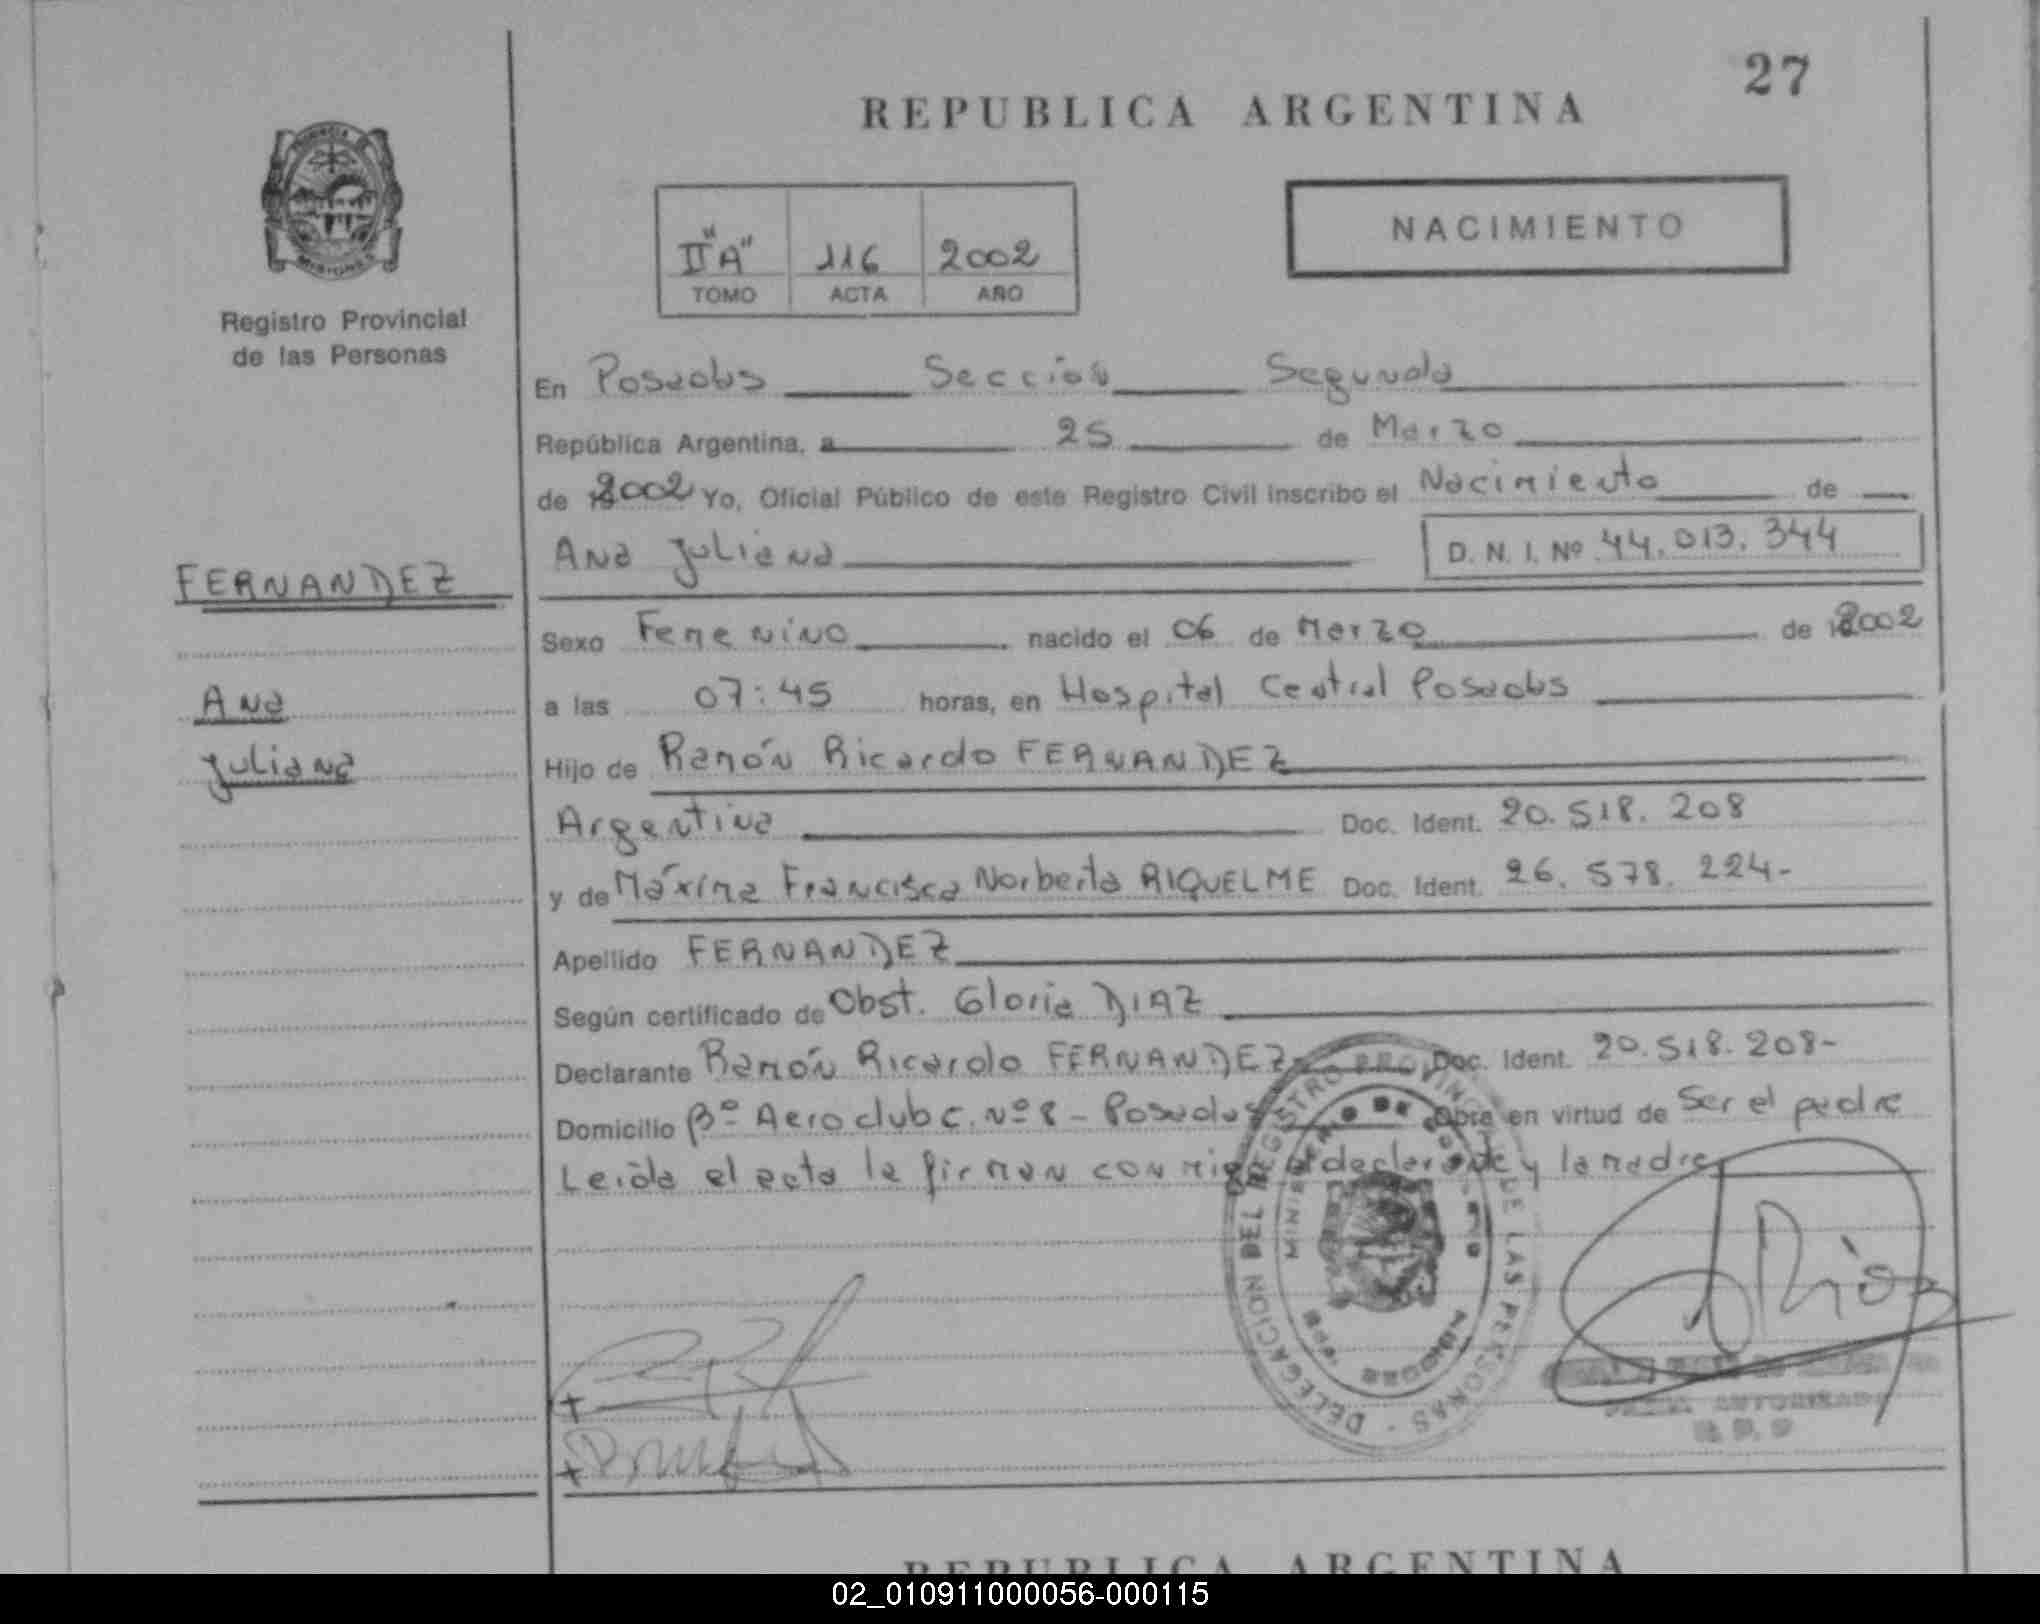 27
REPUBLICA ARGENTINA
PROVINCIA DE MISIONES
Registro Provincial
de las Personas
II "A" 116 2002
TOMO ACTA AÑO
NACIMIENTO
En Posadas Sección Segunda
República Argentina, a 25 de Marzo
de 2002 Yo, Oficial Público de este Registro Civil inscribo el Nacimiento de
Ana Juliana D. N. I. Nº 44.013.344
FERNANDEZ
Sexo Femenino nacido el 06 de Marzo de 2002
Ana
a las 07:45 horas, en Hospital Central Posadas
Juliana
Hijo de Ramón Ricardo FERNANDEZ
Argentina Doc. Ident. 20.518.208
y de Máxima Francisca Norberta RIQUELME Doc. Ident. 26.578.224-
Apellido FERNANDEZ
Según certificado de Obst. Gloria DIAZ
Declarante Ramón Ricardo FERNANDEZ Doc. Ident. 20.518.208-
Domicilio Bº Aeroclub C. Nº 8 - Posadas Obra en virtud de Ser el padre
Leída el acta la firman conmigo el declarante y la madre
DELEGACION DEL REGISTRO PROVINCIAL DE LAS PERSONAS
MINISTERIO DE GOBIERNO
Ríos
FIRMA AUTORIZADA
R.P.P
REPUBLICA ARGENTINA
02_010911000056-000115